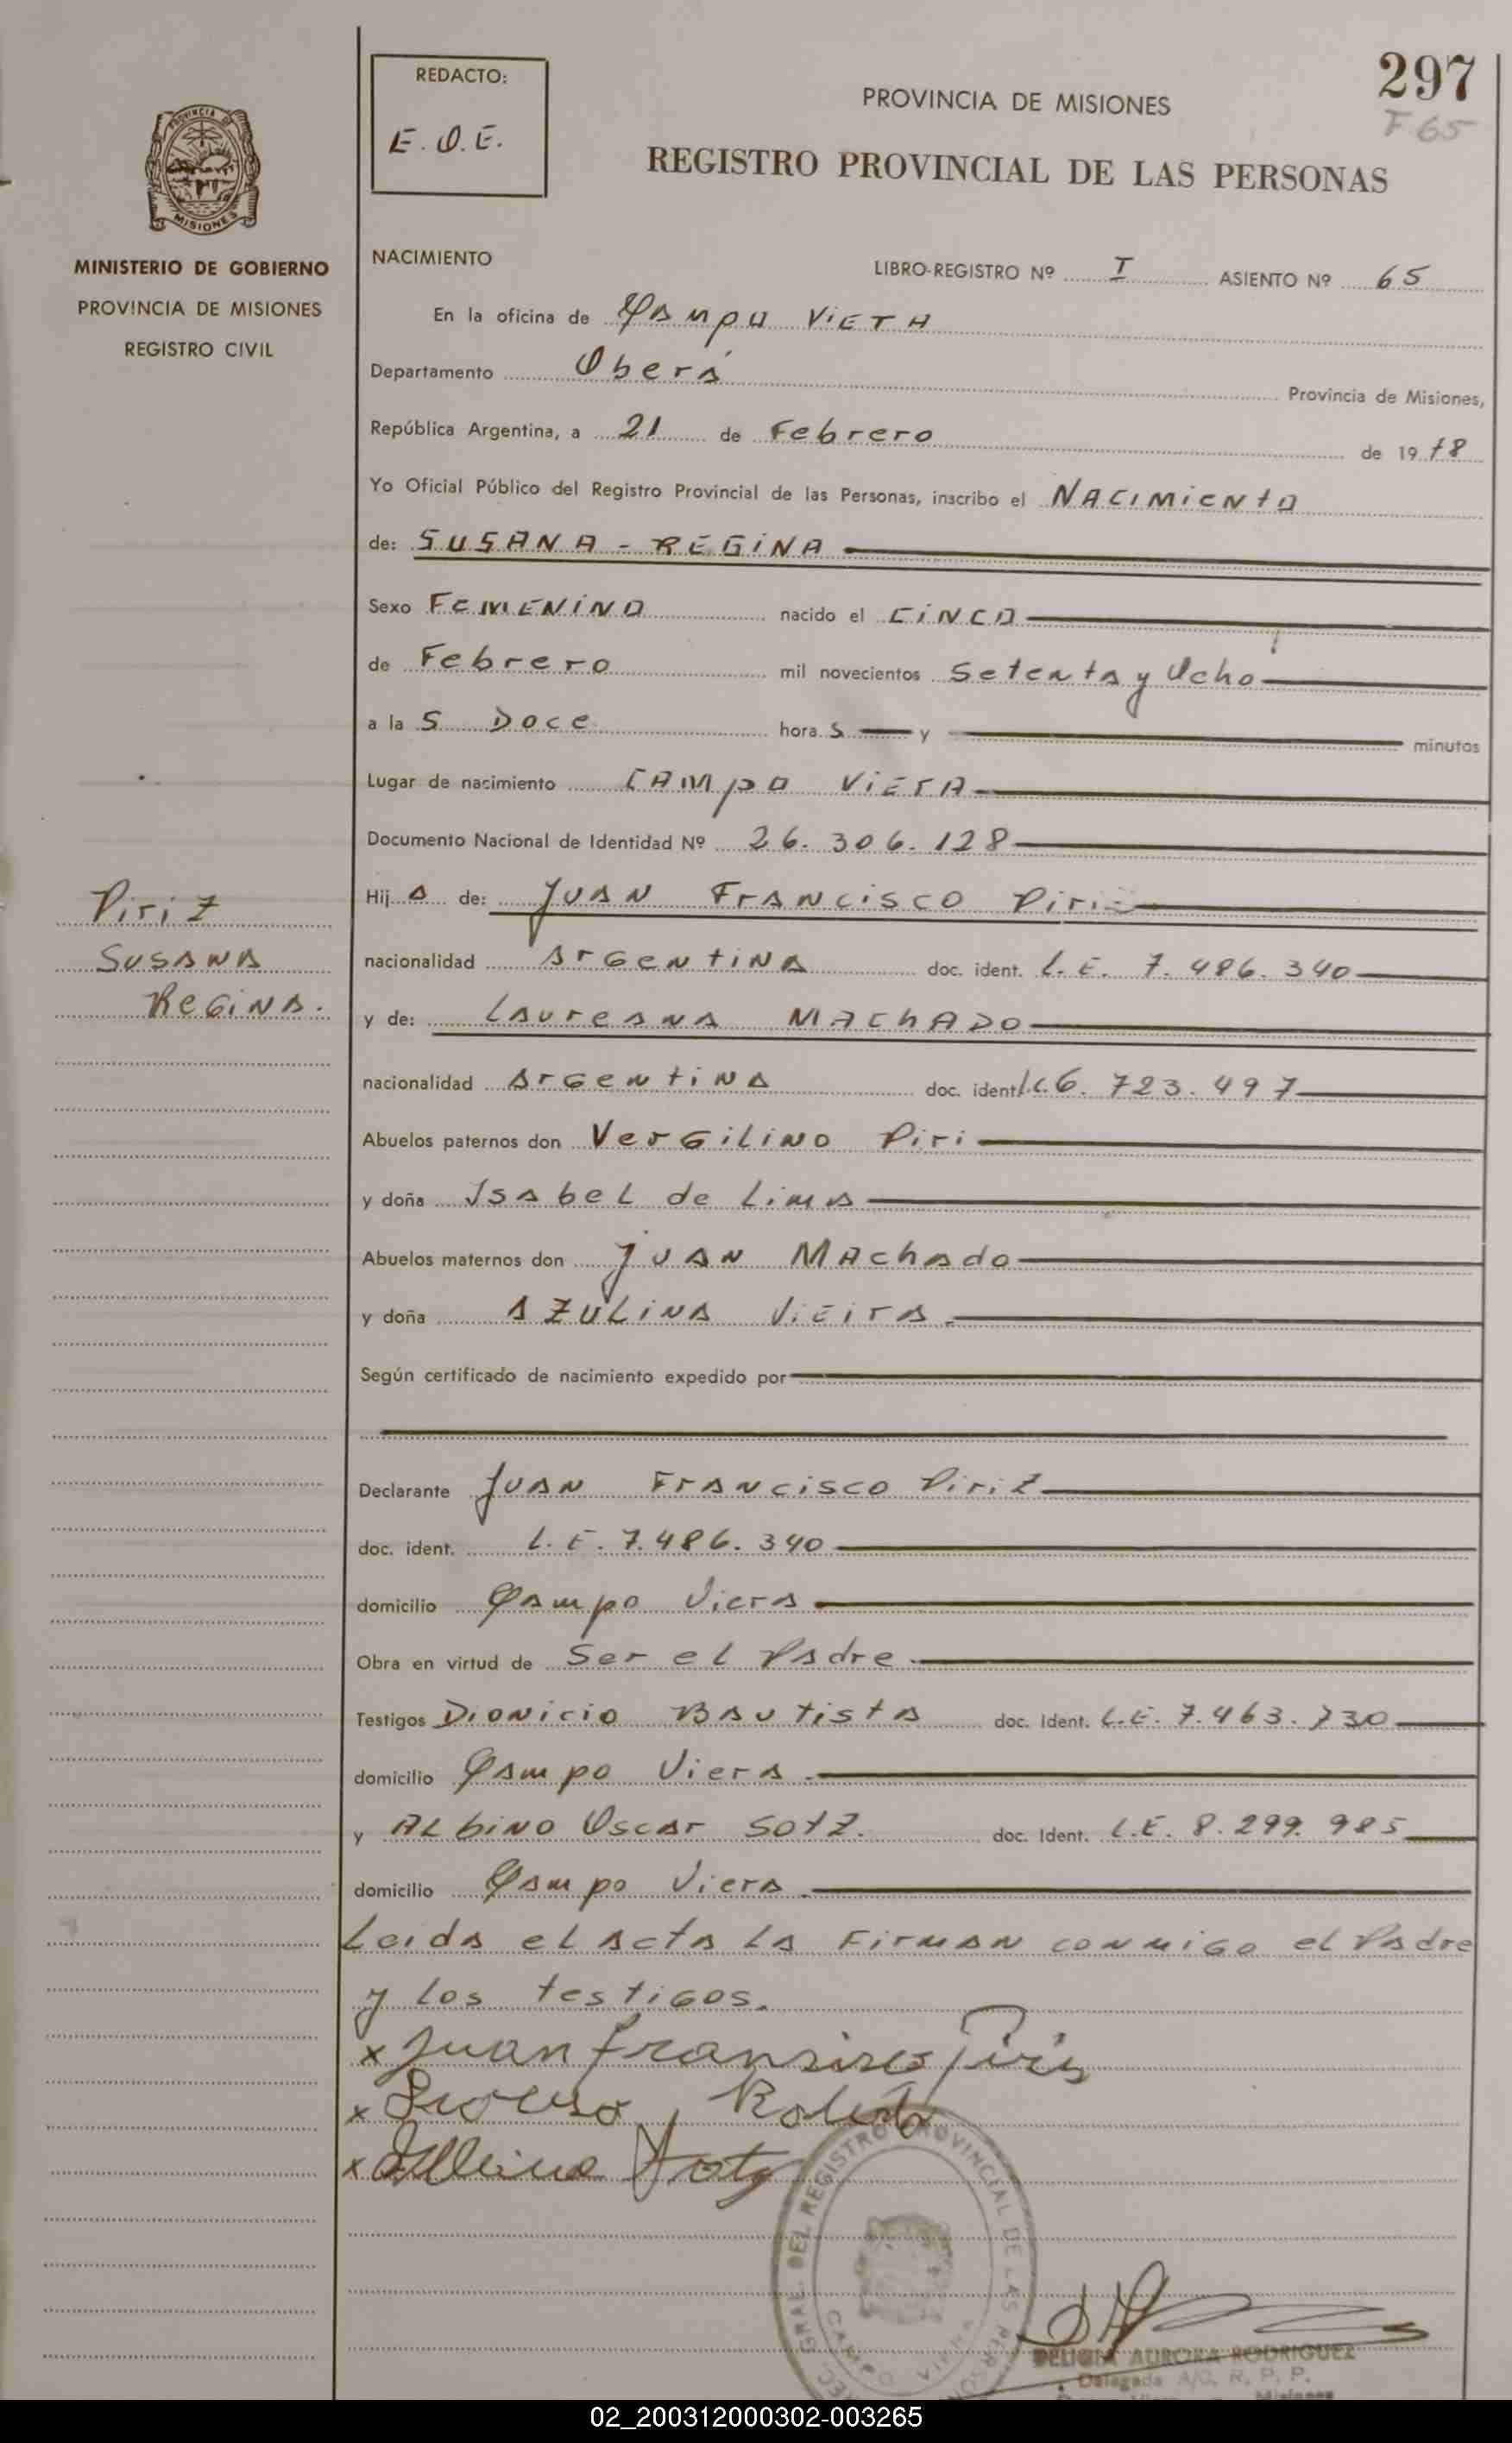 297
F 65
REDACTO:
E.O.E.
PROVINCIA DE MISIONES
REGISTRO PROVINCIAL DE LAS PERSONAS
PROVINCIA DE
MISIONES
MINISTERIO DE GOBIERNO
PROVINCIA DE MISIONES
REGISTRO CIVIL
NACIMIENTO
LIBRO-REGISTRO Nº I ASIENTO Nº 65
En la oficina de Campo VIERA
Departamento Oberá Provincia de Misiones,
República Argentina, a 21 de Febrero de 1978
Yo Oficial Público del Registro Provincial de las Personas, inscribo el NACIMIENTO
de: SUSANA - REGINA
Sexo FEMENINO nacido el CINCO
de Febrero mil novecientos Setenta y Ocho
a la S Doce hora S y minutos
Lugar de nacimiento CAMPO VIERA
Documento Nacional de Identidad Nº 26.306.128
Piriz
SUSANA
REGINA.
Hij A de: JUAN FRANCISCO Piriz
nacionalidad ArGentina doc. ident. L.E. 7.486.340
y de: LAUREANA MACHADO
nacionalidad ArGentina doc. ident. L.C 6.723.497
Abuelos paternos don VerGilino Piri
y doña Isabel de Lima
Abuelos maternos don JUAN MAChado
y doña AZULINA VIEIRA.
Según certificado de nacimiento expedido por
Declarante JUAN FRANCISCO Piriz
doc. ident. L.E. 7.486.340
domicilio Campo Viera
Obra en virtud de Ser el Padre.
Testigos Dionicio BAutista doc. Ident. L.E. 7.463.730
domicilio Campo Viera.
y ALbino Oscar SOTZ. doc. Ident. L.E. 8.299.985
domicilio Campo Viera.
Leida el acta la Firman conmigo el Padre
y los testigos.
x Juan fransisco Piris
x
x Albino Sotz
GRAL DEL REGISTRO PROVINCIAL DE LAS PERSONAS
CAMPO VIERA
DELICIA AURORA RODRIGUEZ
Delegada A/C. R. P. P.
Misiones
02_200312000302-003265